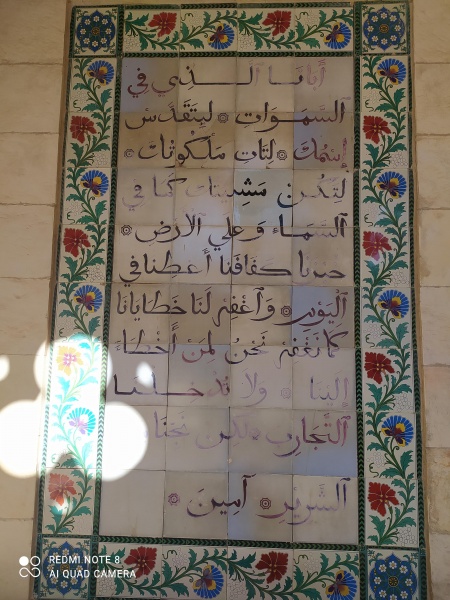 أبانا ٱلـــذي في
ٱلسَّمَوَاتِ ۞ لِيَتَقَدَّسَ
إِسْمُكَ ۞ لِتَاتِ مَلَكُوتُكَ ۞
لِتَكُـن مَشِيئَتُكَ كَمَا فِي
ٱلسَّمَـاءِ وَعلي ٱلأرضِ ۞
خبزنا كفافنا أعطنا في
ٱليَوْمِ ۞ وَٱغْفِرْ لَنَا خَطَايَانا
كمَا نَغْفِرُ نَحْنُ لِمَنْ أَخْطَاءَ
إِلينا ۞ ولا تدخـــلنـــا
ٱلتَّجَارِبَ لكن نَجِّنَا
ٱلشَّرِيرِ ۞ آمِينَ ۞
REDMI NOTE 8
AI QUAD CAMERA